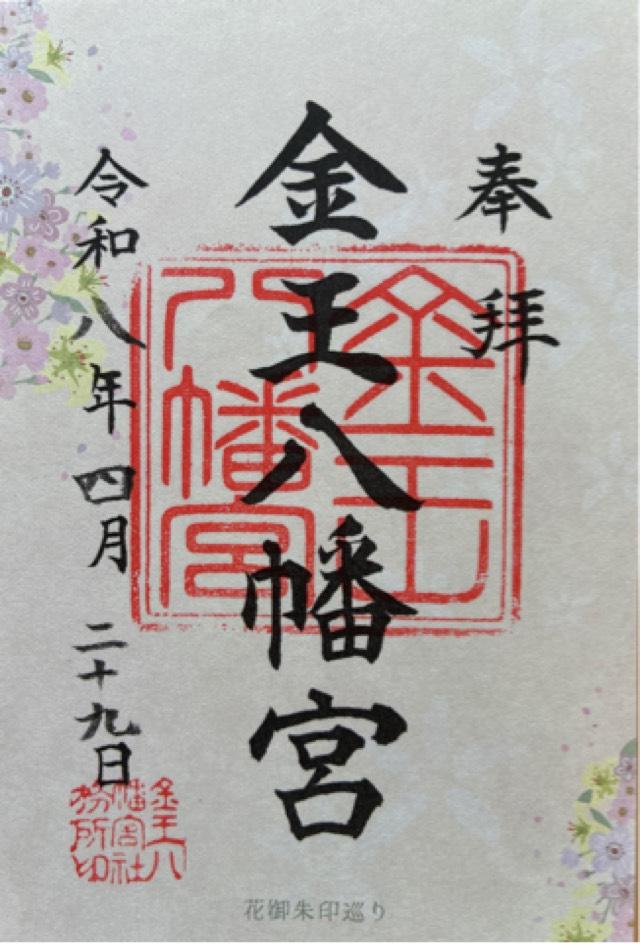 奉拝
金王八幡宮
令和八年四月二十九日
金王八幡宮
金王八
幡宮社
務所印
花御朱印巡り